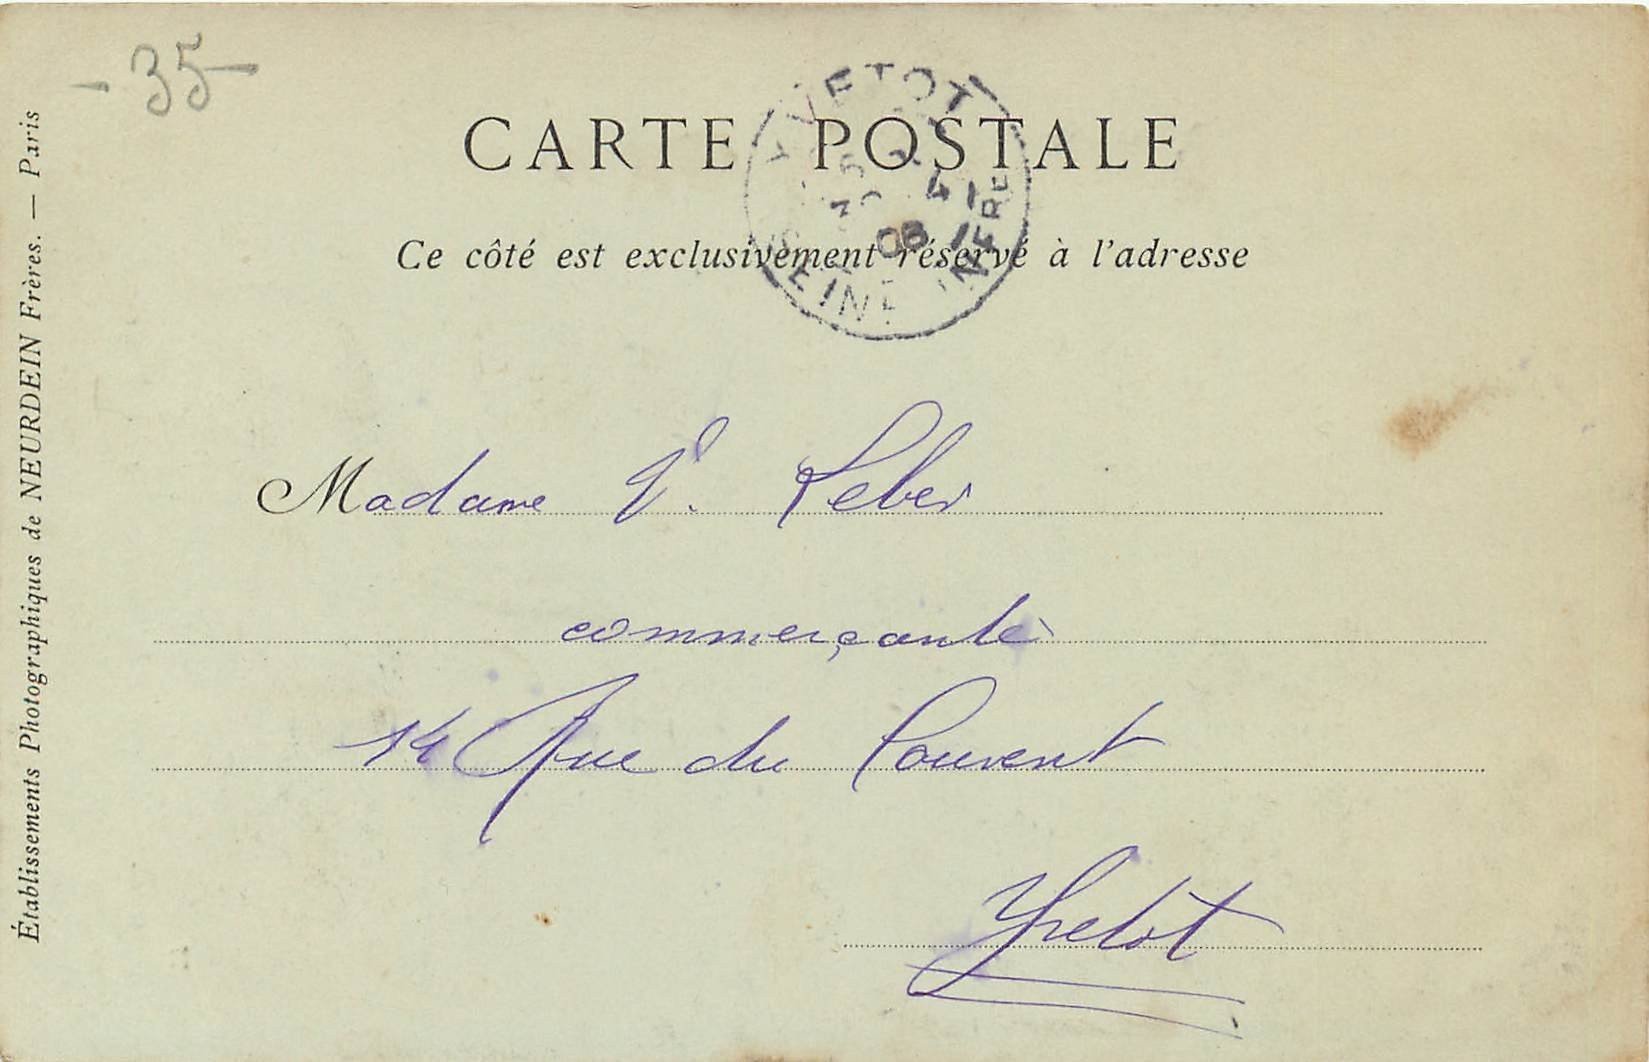 - 35 -
CARTE POSTALE
Ce côté est exclusivement réservé à l'adresse
YVETOT
4
08
SEINE INFRE
Madame V. Leber
commerçante
14 Rue du Couvent
Yvetot
Établissements Photographiques de NEURDEIN Frères. — Paris